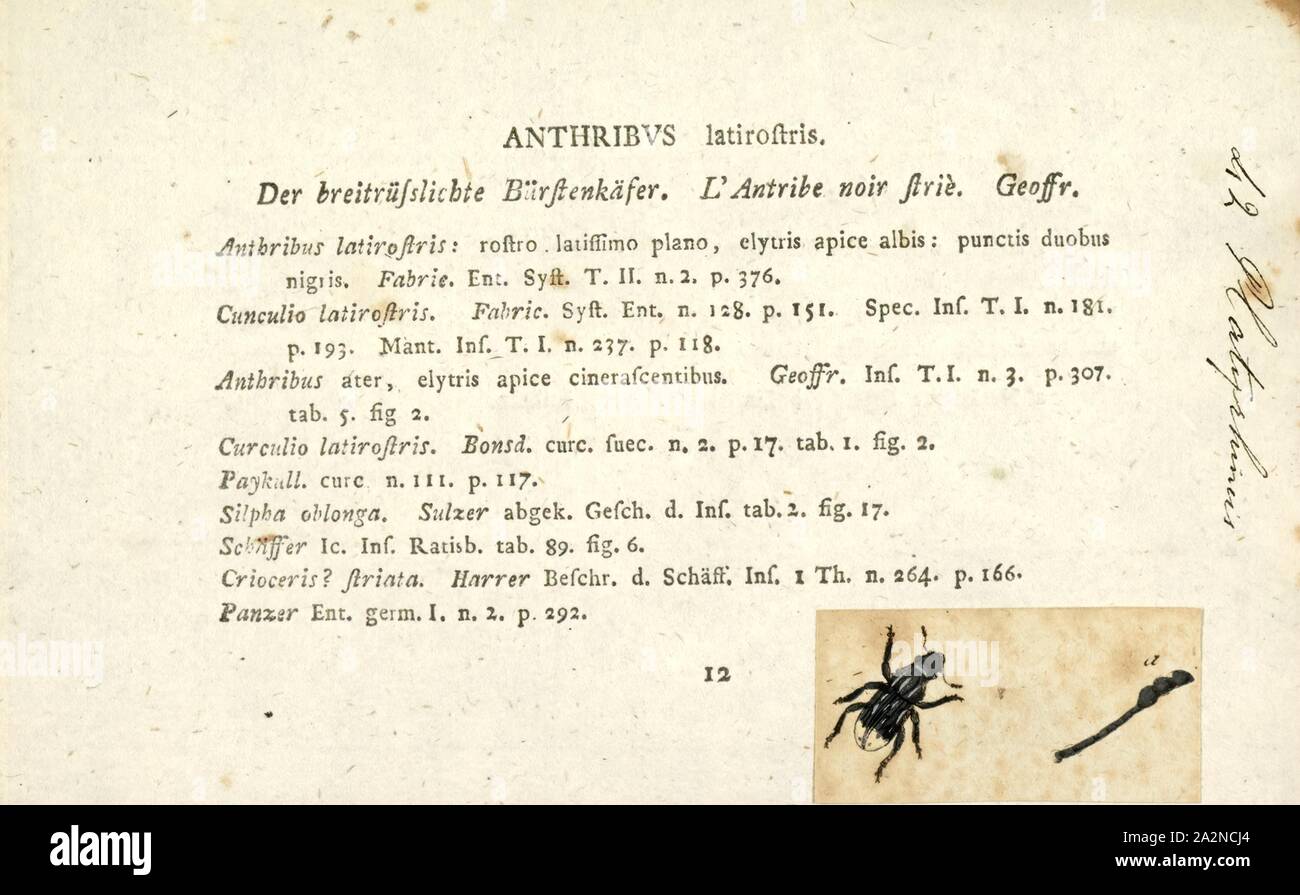 ANTHRIBVS latiroſtris.
Der breitrüſslichte Bürſtenkäfer. L'Antribe noir ſtriè. Geoffr.
Anthribus latiroſtris: roſtro latiſſimo plano, elytris apice albis: punctis duobus
nigris. Fabric. Ent. Syſt. T. II. n. 2. p. 376.
Cunculio latiroſtris. Fabric. Syſt. Ent. n. 128. p. 151. Spec. Inſ. T. I. n. 181.
p. 193. Mant. Inſ. T. I. n. 237. p. 118.
Anthribus ater, elytris apice cineraſcentibus. Geoffr. Inſ. T. I. n. 3. p. 307.
tab. 5. fig 2.
Curculio latiroſtris. Bonsd. curc. ſuec. n. 2. p. 17. tab. 1. fig. 2.
Paykull. curc. n. 111. p. 117.
Silpha oblonga. Sulzer abgek. Geſch. d. Inſ. tab. 2. fig. 17.
Schäffer Ic. Inſ. Ratisb. tab. 89. fig. 6.
Crioceris? ſtriata. Harrer Beſchr. d. Schäff. Inſ. 1 Th. n. 264. p. 166.
Panzer Ent. germ. I. n. 2. p. 292.
12
a
Platyrhinus
alamy
Image ID: A2NCJ4
www.alamy.com